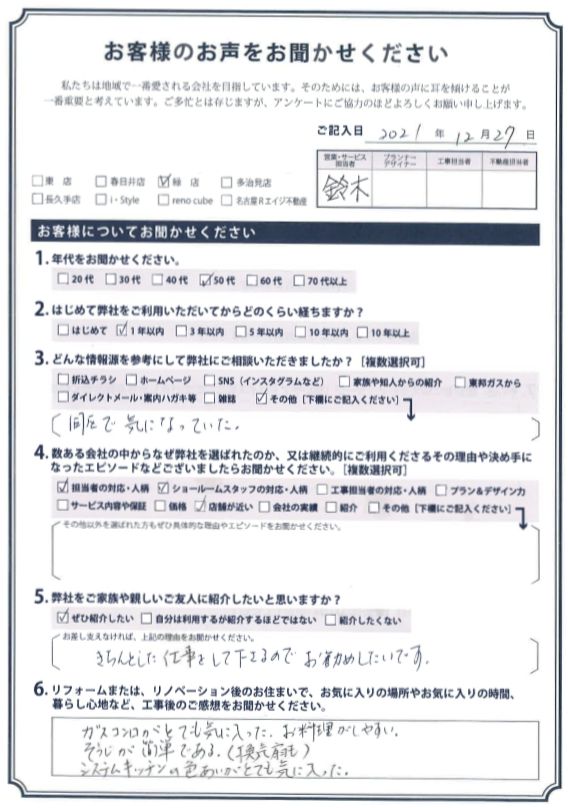 お客様のお声をお聞かせください
私たちは地域で一番愛される会社を目指しています。そのためには、お客様の声に耳を傾けることが
一番重要と考えています。ご多忙とは存じますが、アンケートにご協力のほどよろしくお願い申し上げます。
ご記入日 2021 年 12 月 27 日
営業・サービス担当者 プランナーデザイナー 工事担当者 不動産担当者
鈴木
□東 店 □春日井店 ☑緑 店 □多治見店
□長久手店 □i・Style □reno cube □名古屋Rエイジ不動産
お客様についてお聞かせください
1. 年代をお聞かせください。
□20代 □30代 □40代 ☑50代 □60代 □70代以上
2. はじめて弊社をご利用いただいてからどのくらい経ちますか？
□はじめて ☑1年以内 □3年以内 □5年以内 □10年以内 □10年以上
3. どんな情報源を参考にして弊社にご相談いただきましたか？［複数選択可］
□折込チラシ □ホームページ □SNS（インスタグラムなど） □家族や知人からの紹介 □東邦ガスから
□ダイレクトメール・案内ハガキ等 □雑誌 ☑その他［下欄にご記入ください］
で気になっていた。
4. 数ある会社の中からなぜ弊社を選ばれたのか、又は継続的にご利用くださるその理由や決め手に
なったエピソードなどございましたらお聞かせください。［複数選択可］
☑担当者の対応・人柄 ☑ショールームスタッフの対応・人柄 □工事担当者の対応・人柄 □プラン&デザイン力
□サービス内容や保証 □価格 ☑店舗が近い □会社の実績 □紹介 □その他［下欄にご記入ください］
その他以外を選ばれた方もぜひ具体的な理由やエピソードをお聞かせください。
5. 弊社をご家族や親しいご友人に紹介したいと思いますか？
☑ぜひ紹介したい □自分は利用するが紹介するほどではない □紹介したくない
お差し支えなければ、上記の理由をお聞かせください。
きちんとした仕事をして下さるのでお勧めしたいです。
6. リフォームまたは、リノベーション後のお住まいで、お気に入りの場所やお気に入りの時間、
暮らし心地など、工事後のご感想をお聞かせください。
ガスコンロがとても気に入った。お料理がしやすい。
そうじが簡単である。（換気扇も）
システムキッチンの色あいがとても気に入った。